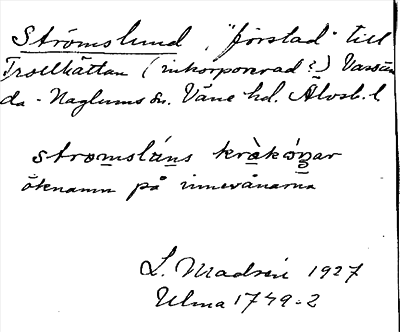 Strömslund, "förstad" till
Trollhättan (inkorporerad?) Vassän
da-Naglums sn. Väne hd. Älvsb. l
stromsláns kràkóŋar
öknamn på innevånarna
L. Madsén 1927
Ulma 1749:2